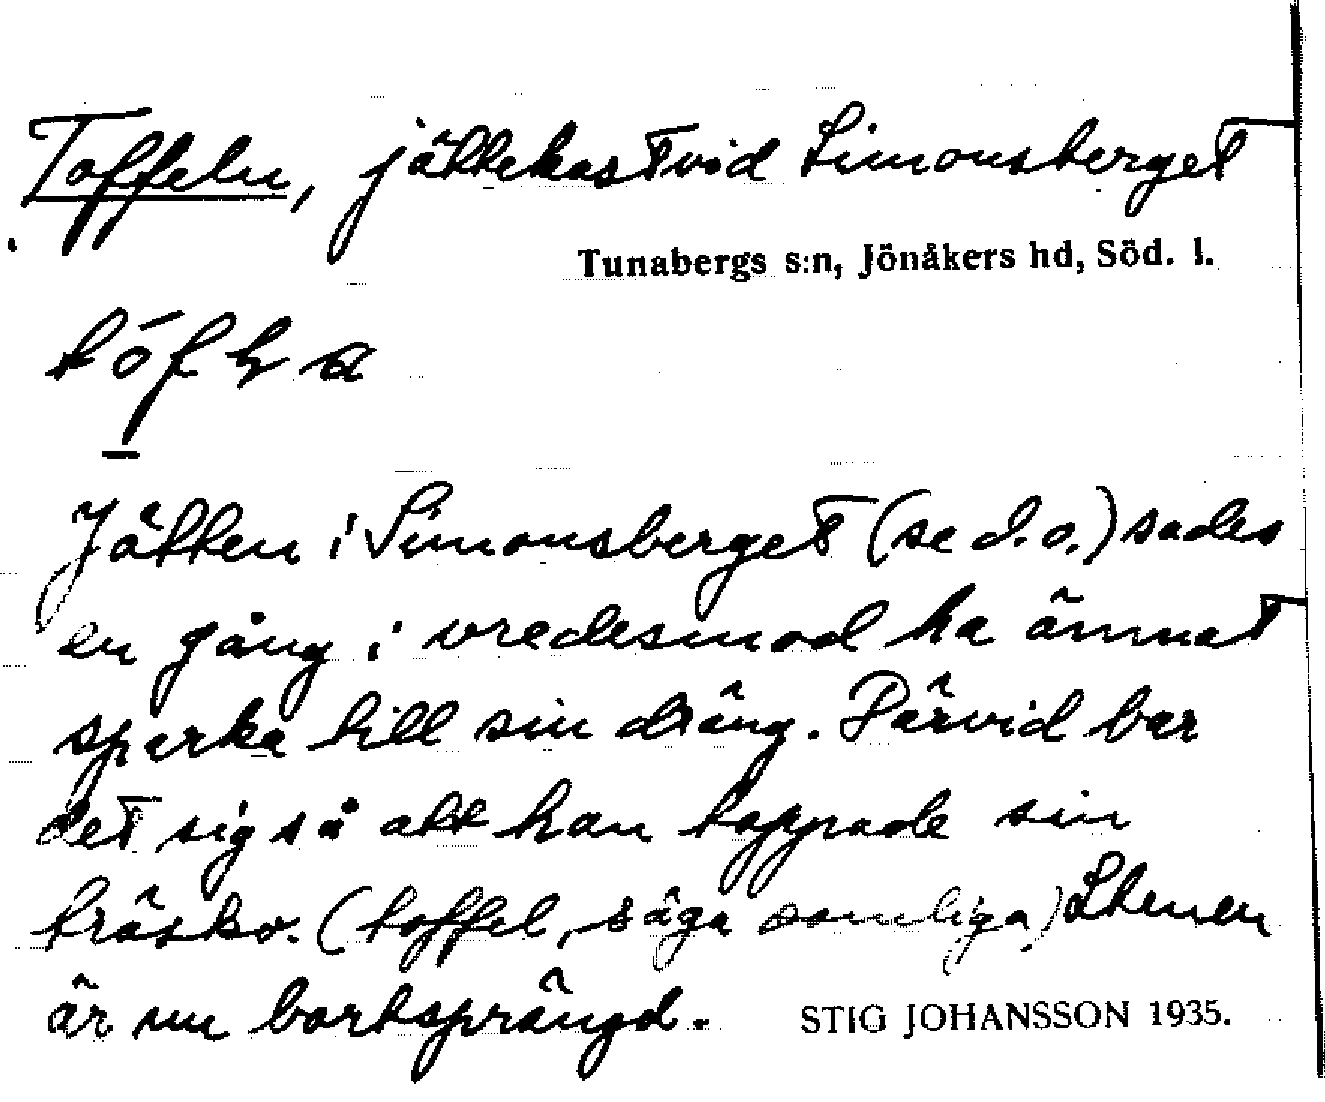 Toffeln, jättekast vid Simonsberget
Tunabergs s:n, Jönåkers hd, Söd. l.
Jätten i Simonsberget (se d.o.) sades
en gång i vredesmod ha ämnat
sparka till sin dräng. Därvid bar
det sig så att han tappade sin
träsko. (toffel, säga somliga) Stenen
är nu bortsprängd. STIG JOHANSSON 1935.